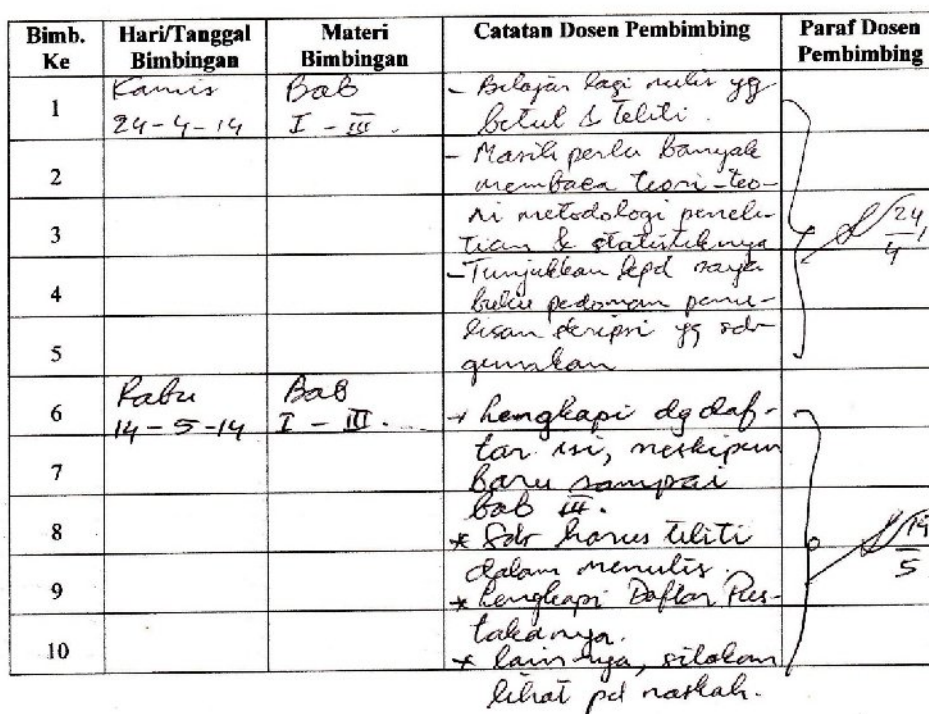 Bimb. Ke Hari/Tanggal Bimbingan Materi Bimbingan Catatan Dosen Pembimbing Paraf Dosen Pembimbing
1 Kamis Bab - Belajar lagi nulis yg
24-4-14 I - III. betul & teliti.
- Masih perlu banyak
2 membaca teori-teo-
3 ri metodologi peneli-
tian & statistiknya 24/4
4 - Tunjukkan kpd saya
buku pedoman penu-
5 lisan skripsi yg sdr
gunakan
6 Rabu Bab * Lengkapi dg daf-
14-5-14 I - III. tar isi, meskipun
7 baru sampai
bab III.
8 * Sdr harus teliti 14/5
dalam menulis.
9 * Lengkapi Daftar Pus-
takanya.
10 * lain-nya, silakan
lihat pd naskah.